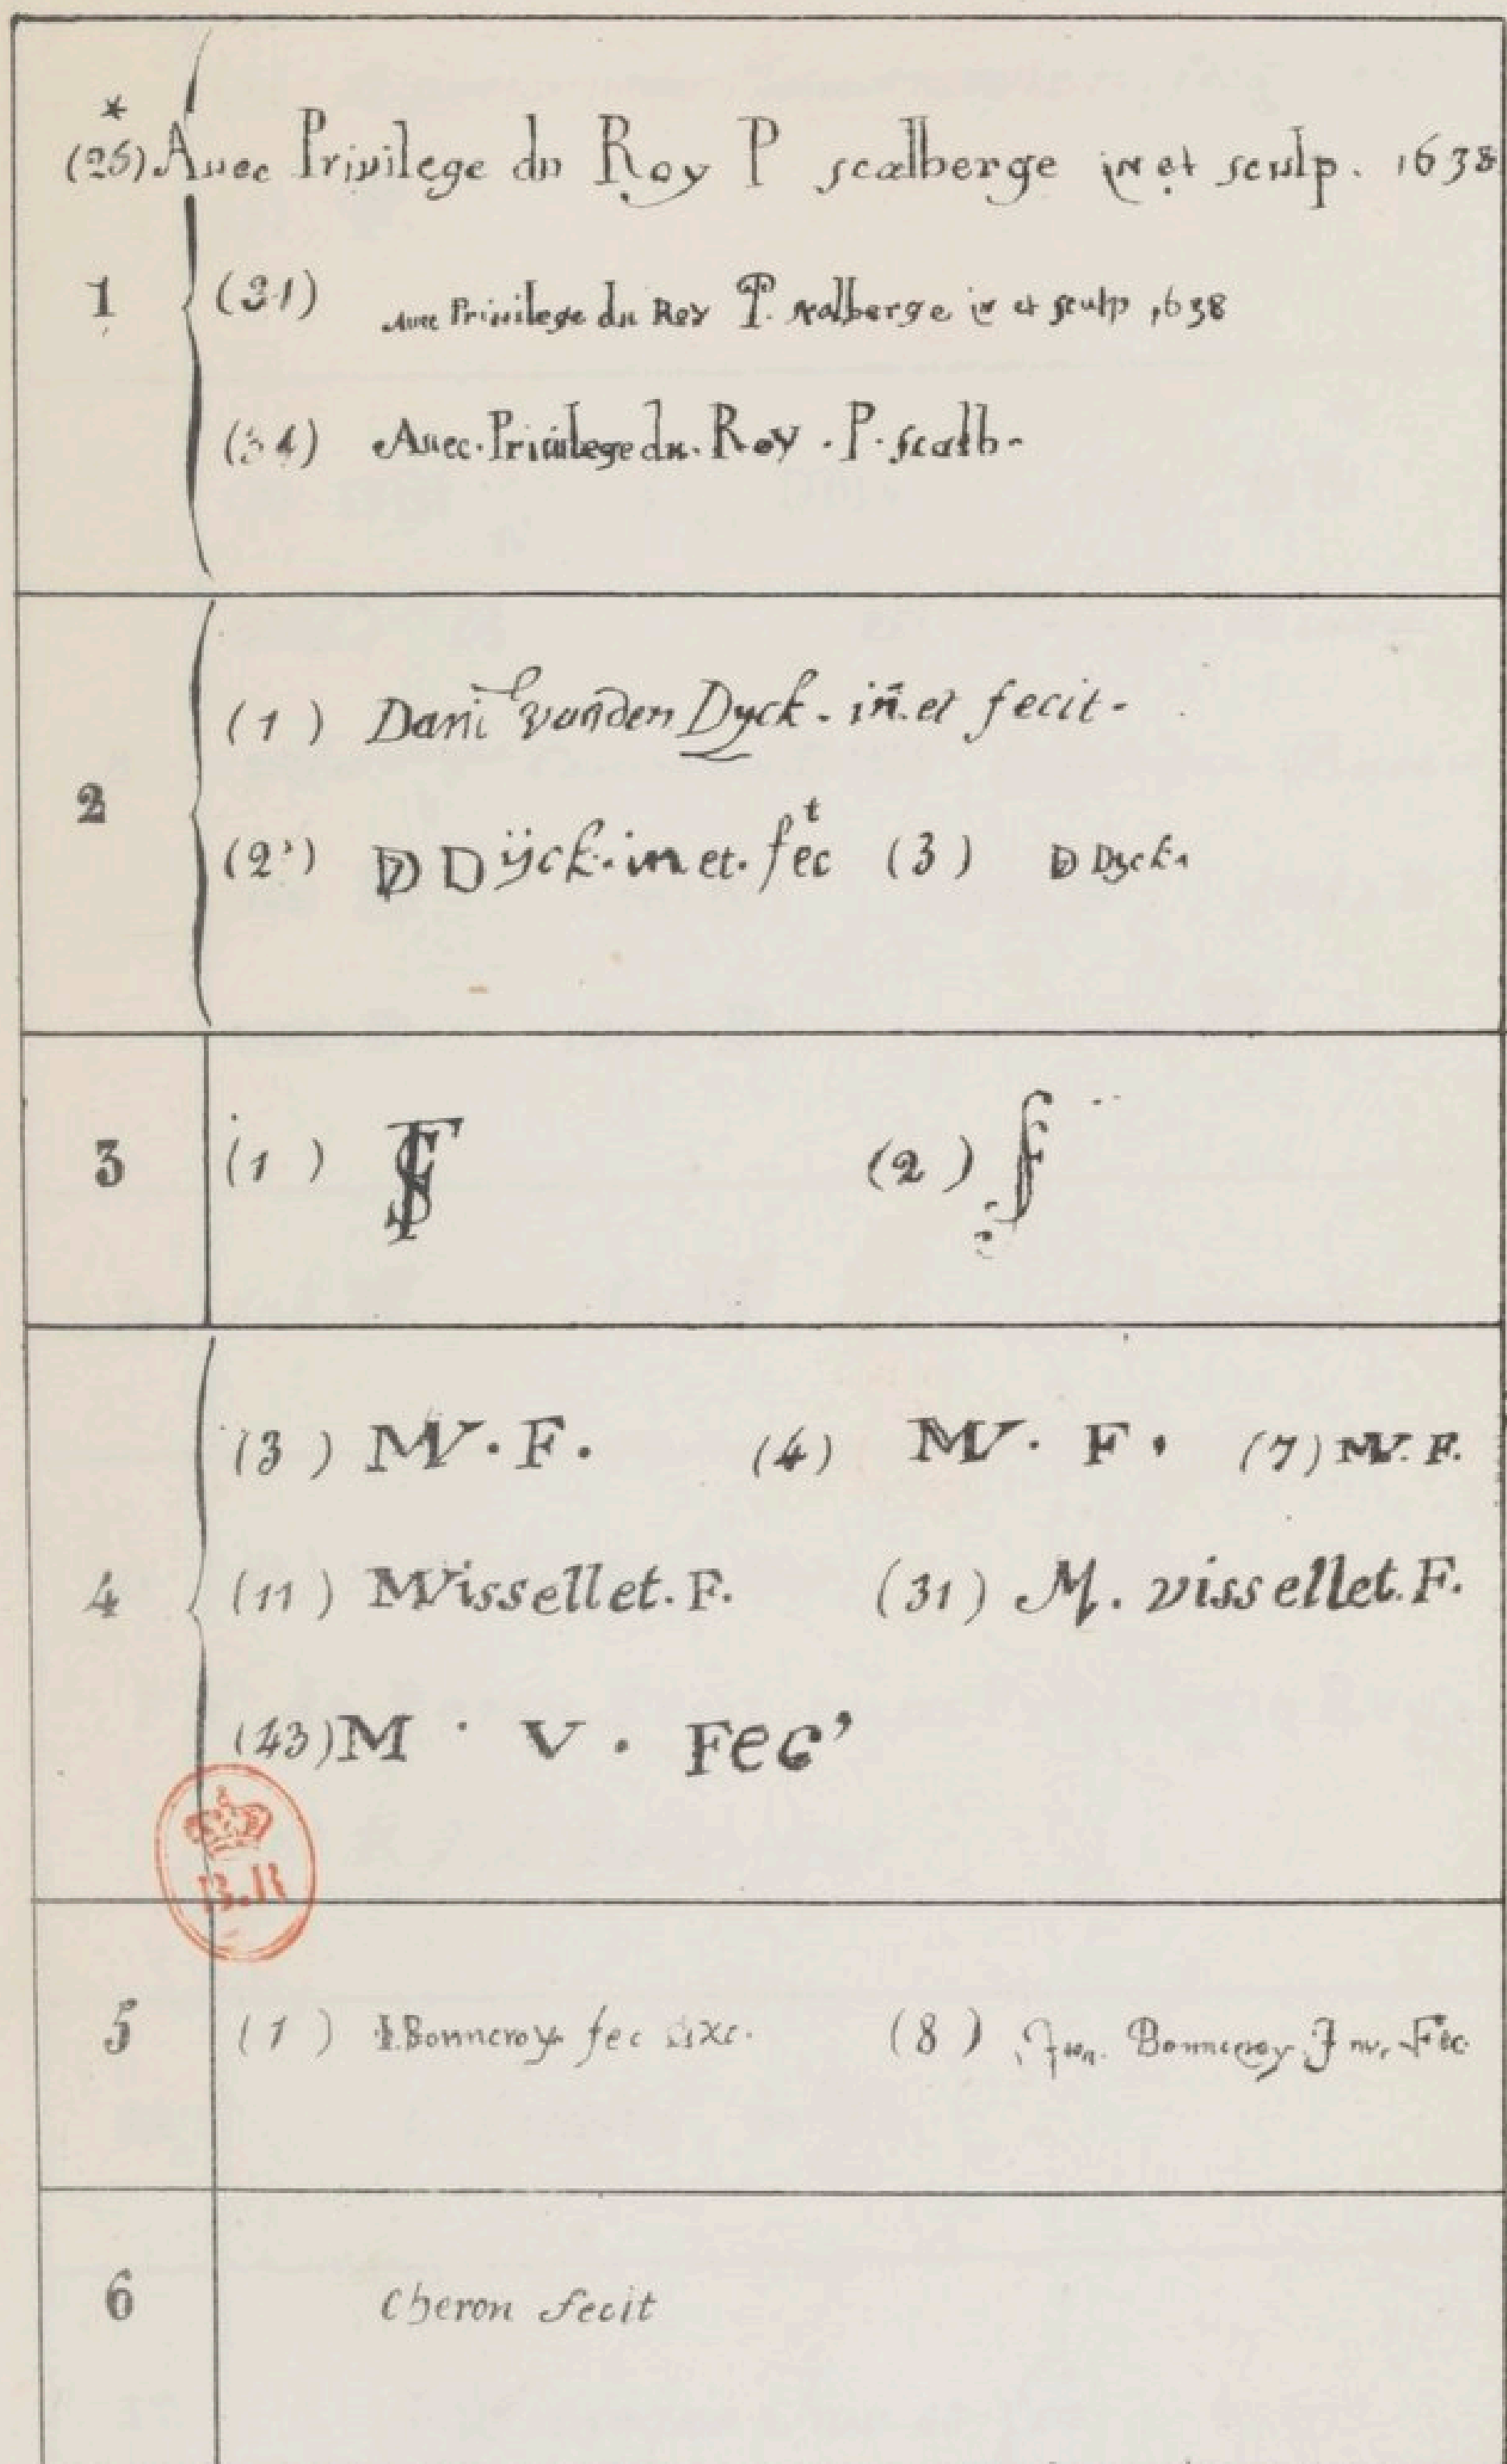 *
(25) Auec Privilege du Roy P scalberge in et sculp. 1638
1 (31) Auec Privilege du Roy P. scalberge in et sculp 1638
(34) Auec. Privilege du. Roy . P. scalb.
(1) Dani^el vanden Dyck. in. et fecit.
2
(2) D D ÿck. in et. fec^t (3) D Dyck.
3 (1) (2)
(3) MV. F. (4) MV. F. (7) MV. F.
4 (11) MVissellet. F. (31) M. vissellet. F.
(43) M . V . Fec'
B.R
5 (1) I. Bonncroy fec exc. (8) Bonncroy Inv. Fec.
6 Cheron fecit